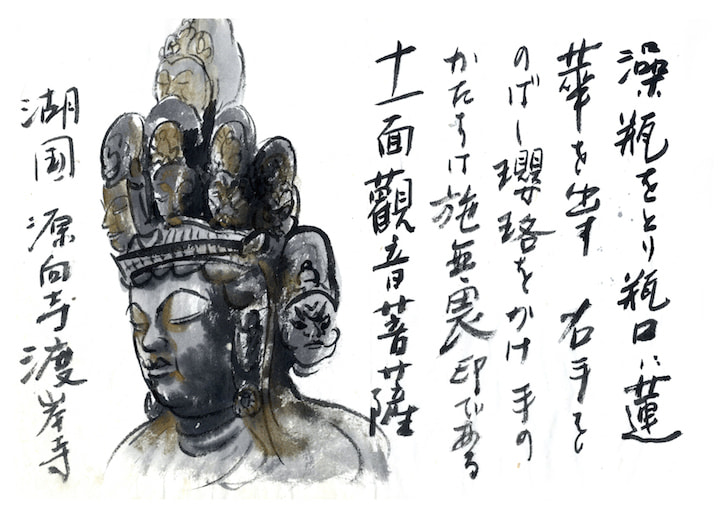 澡瓶をとり瓶口に蓮
華を出す 右手を
のばし瓔珞をかけ手の
かたちは施無畏印である
十一面觀音菩薩
湖国 源向寺渡岸寺